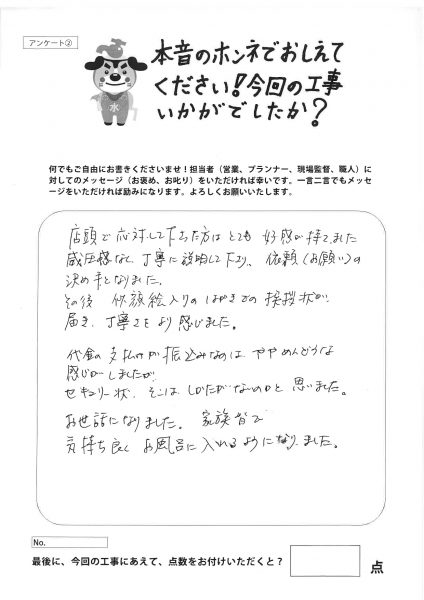 アンケート②
本音のホンネでおしえて
ください！今回の工事
いかがでしたか？
水
何でもご自由にお書きくださいませ！担当者（営業、プランナー、現場監督、職人）に
対してのメッセージ（お褒め、お叱り）をいただければ幸いです。一言二言でもメッセ
ージをいただければ励みになります。よろしくお願いいたします。
店頭で応対して下さった方はとても 好感が持てました
威圧感なく、丁寧に説明して下さり、依頼（お願い）の
決め手となりました。
その後 似顔絵入りのはがきでの 挨拶状が
届き、丁寧さをより感じました。
代金の支払いが振込みなのは ややめんどうな
感じがしましたが、
セキュリティー状、そこは しかたがないのかと 思いました。
お世話になりました。 家族皆で
気持ち良く お風呂に入れるようになりました。
No.
最後に、今回の工事にあえて、点数をお付けいただくと？
点